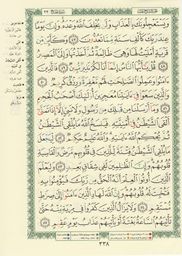 وَيَسْتَعْجِلُونَكَ بِالْعَذَابِ وَلَن يُخْلِفَ اللَّهُ وَعْدَهُ وَإِنَّ يَوْمًا
عِندَ رَبِّكَ كَأَلْفِ سَنَةٍ مِّمَّا تَعُدُّونَ ٤٧ وَكَأَيِّن مِّن
قَرْيَةٍ أَمْلَيْتُ لَهَا وَهِيَ ظَالِمَةٌ ثُمَّ أَخَذْتُهَا وَإِلَيَّ الْمَصِيرُ
٤٨ قُلْ يَٰأَيُّهَا النَّاسُ إِنَّمَا أَنَا لَكُمْ نَذِيرٌ مُّبِينٌ ٤٩ فَالَّذِينَ
ءَامَنُوا وَعَمِلُوا الصَّٰلِحَٰتِ لَهُم مَّغْفِرَةٌ وَرِزْقٌ كَرِيمٌ ٥٠
وَالَّذِينَ سَعَوْا فِي ءَايَٰتِنَا مُعَٰجِزِينَ أُولَٰئِكَ أَصْحَٰبُ الْجَحِيمِ
٥١ وَمَا أَرْسَلْنَا مِن قَبْلِكَ مِن رَّسُولٍ وَلَا نَبِيٍّ إِلَّا إِذَا تَمَنَّىٰ
أَلْقَى الشَّيْطَٰنُ فِي أُمْنِيَّتِهِ فَيَنسَخُ اللَّهُ مَا يُلْقِي الشَّيْطَٰنُ
ثُمَّ يُحْكِمُ اللَّهُ ءَايَٰتِهِ وَاللَّهُ عَلِيمٌ حَكِيمٌ ٥٢ لِّيَجْعَلَ
مَا يُلْقِي الشَّيْطَٰنُ فِتْنَةً لِّلَّذِينَ فِي قُلُوبِهِم مَّرَضٌ وَالْقَاسِيَةِ
قُلُوبُهُمْ وَإِنَّ الظَّٰلِمِينَ لَفِي شِقَاقٍ بَعِيدٍ ٥٣ وَلِيَعْلَمَ
الَّذِينَ أُوتُوا الْعِلْمَ أَنَّهُ الْحَقُّ مِن رَّبِّكَ فَيُؤْمِنُوا بِهِ
فَتُخْبِتَ لَهُ قُلُوبُهُمْ وَإِنَّ اللَّهَ لَهَادِ الَّذِينَ ءَامَنُوا إِلَىٰ صِرَٰطٍ
مُّسْتَقِيمٍ ٥٤ وَلَا يَزَالُ الَّذِينَ كَفَرُوا فِي مِرْيَةٍ مِّنْهُ حَتَّىٰ
تَأْتِيَهُمُ السَّاعَةُ بَغْتَةً أَوْ يَأْتِيَهُمْ عَذَابُ يَوْمٍ عَقِيمٍ ٥٥
٣٣٨